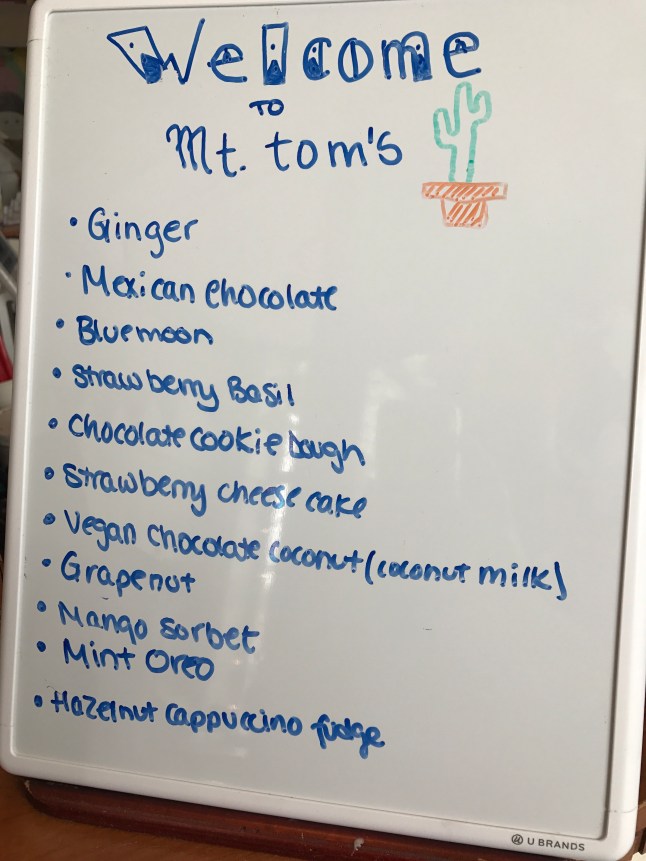 Welcome
TO
Mt. tom's
• Ginger
• Mexican Chocolate
• Bluemoon
• Strawberry Basil
• Chocolate cookie Dough
• Strawberry cheese cake
• Vegan Chocolate coconut (coconut milk)
• Grapenut
• Mango sorbet
• Mint Oreo
• Hazelnut cappuccino fudge
U BRANDS